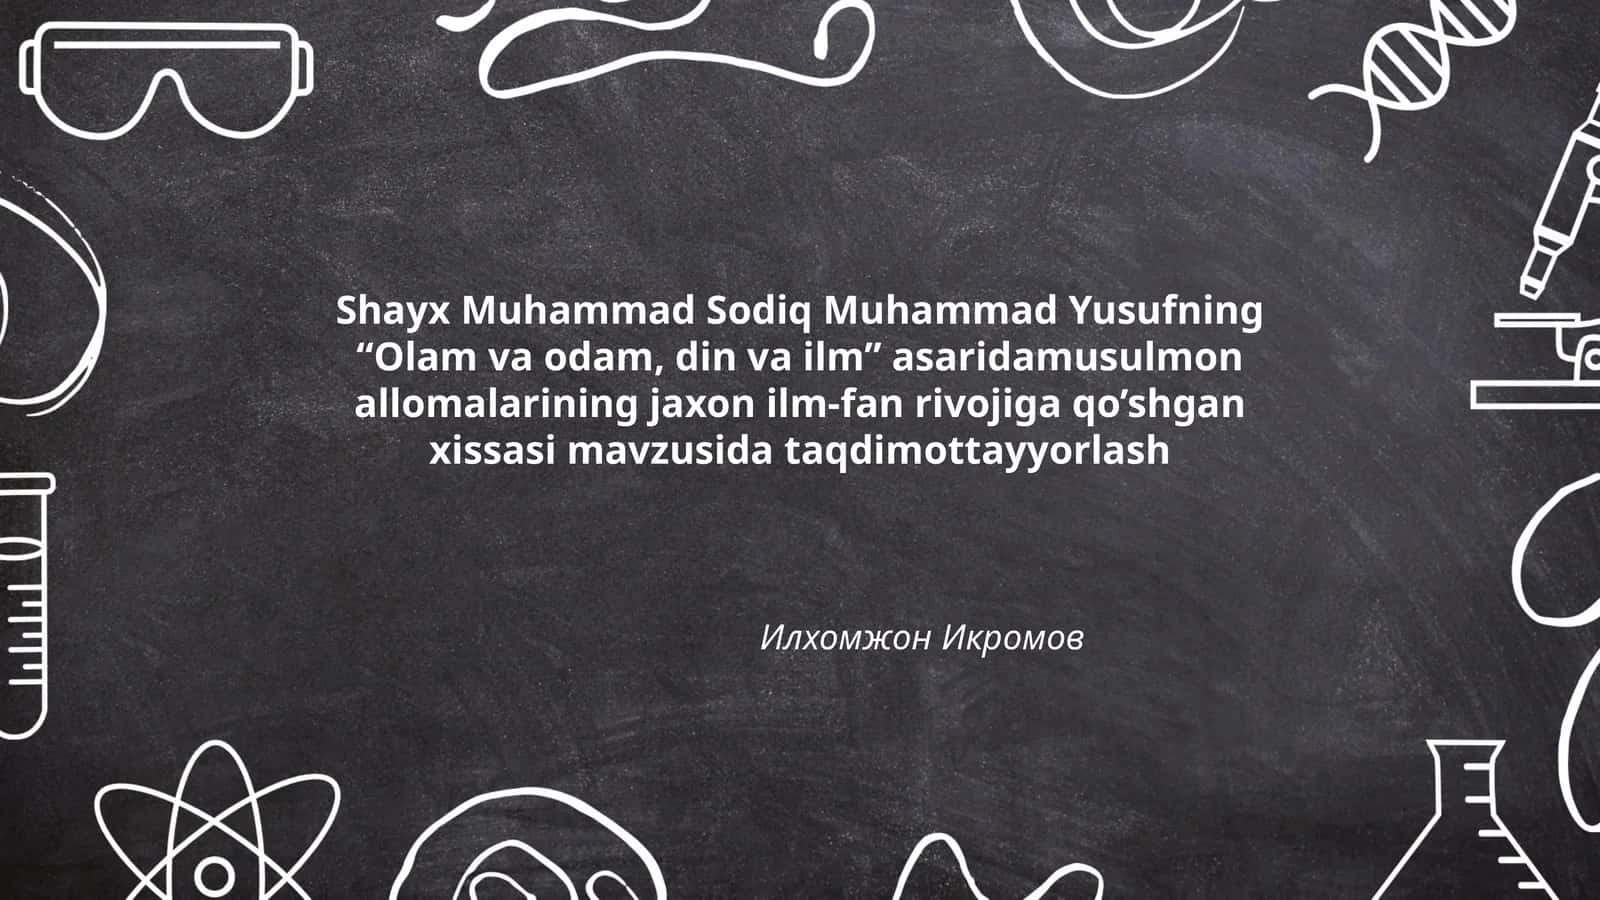 Shayx Muhammad Sodiq Muhammad Yusufning
“Olam va odam, din va ilm” asaridamusulmon
allomalarining jaxon ilm-fan rivojiga qo’shgan
xissasi mavzusida taqdimottayyorlash
Илхомжон Икромов